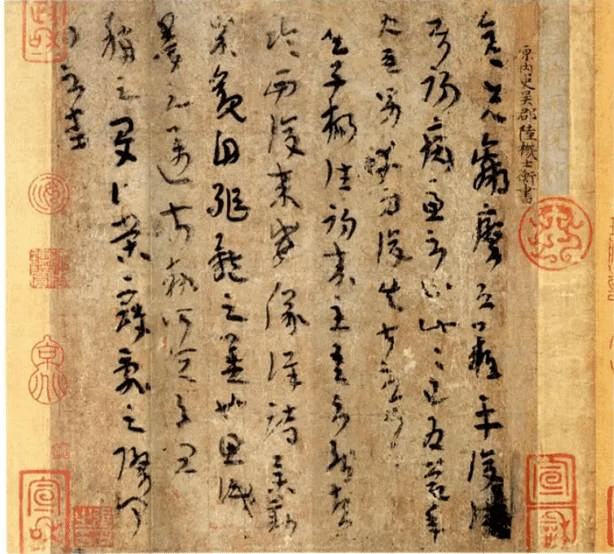 晉內史吳郡陸機士衡書
彦先羸瘵恐難平復往屬
初病慮不止此此已為慶承
使唯男幸為復失前憂耳
子楊往初來主吾不能盡
臨西復來威儀詳跱舉動
成觀自軀體之美也思識
量之邁前勢所恒有宜
稱之夏伯榮寇亂之際聞
問不悉
宣和
政和